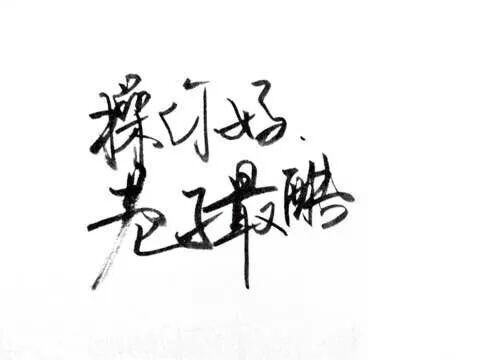 操你妈.
老子最酷